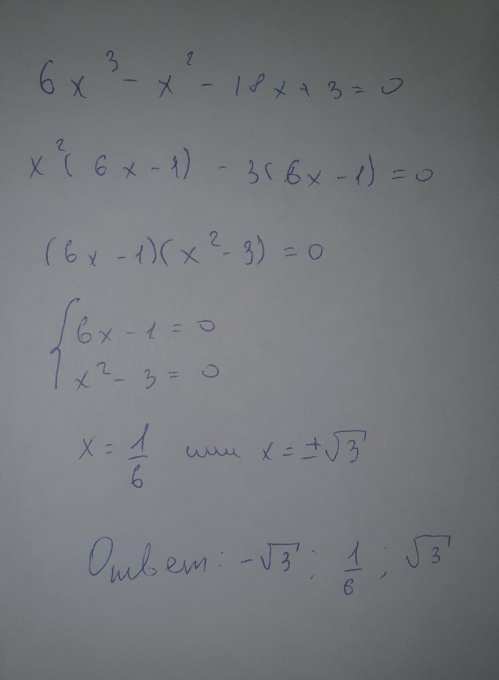 6x³ - x² - 18x + 3 = 0
x²(6x - 1) - 3(6x - 1) = 0
(6x - 1)(x² - 3) = 0
{ 6x - 1 = 0
x² - 3 = 0
x = 1/6 или x = ±√3
Ответ: -√3; 1/6; √3